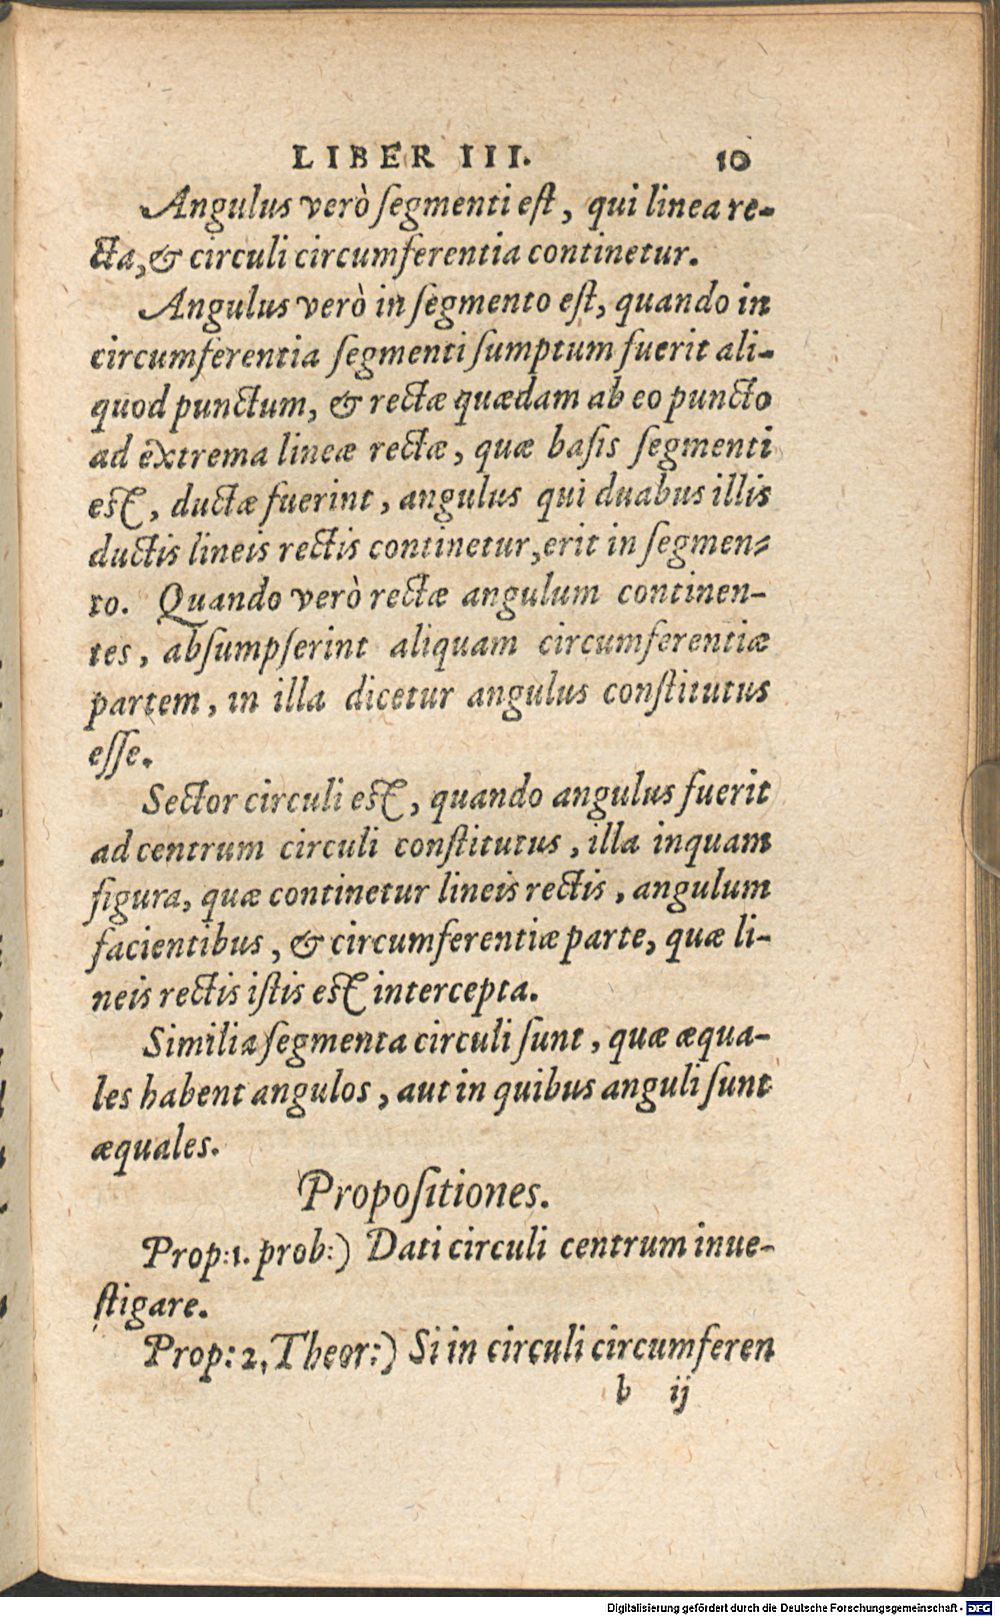 LIBER III. 10
Angulus verò ſegmenti eſt, qui linea re-
cta, & circuli circumferentia continetur.
Angulus verò in ſegmento eſt, quando in
circumferentia ſegmenti ſumptum fuerit ali-
quod punctum, & rectæ quædam ab eo puncto
ad extrema lineæ rectæ, quæ baſis ſegmenti
est, ductæ fuerint, angulus qui duabus illis
ductis lineis rectis continetur, erit in ſegmen-
to. Quando verò rectæ angulum continen-
tes, abſumpſerint aliquam circumferentiæ
partem, in illa dicetur angulus conſtitutus
eſſe.
Sector circuli est, quando angulus fuerit
ad centrum circuli conſtitutus, illa inquam
figura, quæ continetur lineis rectis, angulum
facientibus, & circumferentiæ parte, quæ li-
neis rectis iſtis est intercepta.
Similia ſegmenta circuli ſunt, quæ æqua-
les habent angulos, aut in quibus anguli ſunt
æquales.
Propoſitiones.
Prop:1. prob:) Dati circuli centrum inue-
ſtigare.
Prop: 2, Theor:) Si in circuli circumferen
b ij
Digitalisierung gefördert durch die Deutsche Forschungsgemeinschaft - DFG